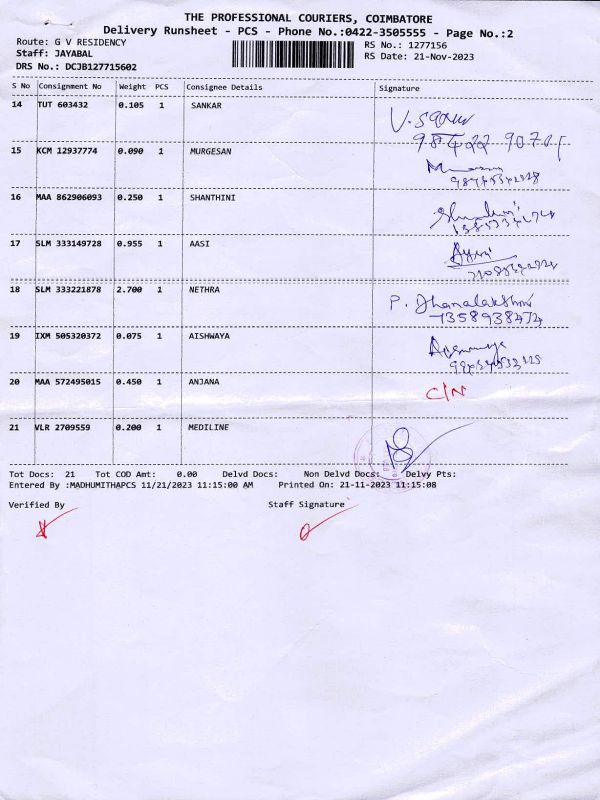 THE PROFESSIONAL COURIERS, COIMBATORE
Delivery Runsheet - PCS - Phone No.:0422-3505555 - Page No.:2
Route: G V RESIDENCY
Staff: JAYABAL
DRS No.: DCJB127715602
RS No.: 1277156
RS Date: 21-Nov-2023
S No Consignment No Weight PCS Consignee Details Signature
14 TUT 603432 0.105 1 SANKAR
15 KCM 12937774 0.090 1 MURGESAN
16 MAA 862906093 0.250 1 SHANTHINI
17 SLM 333149728 0.955 1 AASI
18 SLM 333221878 2.700 1 NETHRA P. Dhanalakshmi
7358938474
19 IXM 505320372 0.075 1 AISHWAYA
20 MAA 572495015 0.450 1 ANJANA C/N
21 VLR 2709559 0.200 1 MEDILINE
Tot Docs: 21 Tot COD Amt: 0.00 Delvd Docs: Non Delvd Docs: Delvy Pts:
Entered By :MADHUMITHAPCS 11/21/2023 11:15:00 AM Printed On: 21-11-2023 11:15:08
Verified By Staff Signature